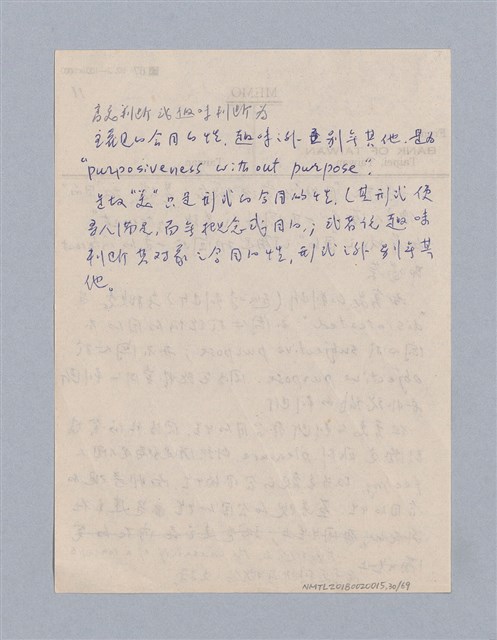 審美判断或趣味判断為
主観的合目的性，趣味之外別無其他，是為
"purposiveness without purpose".
是故"美"只是形式的合目的性，（其形式使
吾人満足，而無概念或目的）；或者說趣味
判断其对象之合目的性，形式之外，別無其
他。
NMTL20180020015.30/69